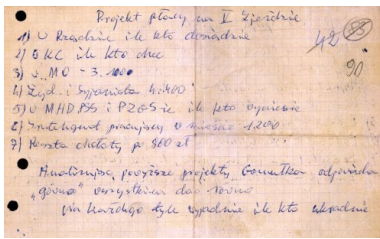 Projekt płacy na V Zjeździe
1) W Rządzie ile kto dosiadzie
2) W KC ile kto chce
3) w MO - 3.1000
4) Żyd i Syjonista 4.400
5) W MHD, PSS i PZGS-ie ile kto wyniesie
6) Inteligent pracujący w mieście 1.200
7) Reszta hołoty po 860 zł
Analizując powyższe projekty Gomułka odpowiada
"gówno" wszystkim do równo
na każdego tyle wypadnie ile kto ukradnie
42
90